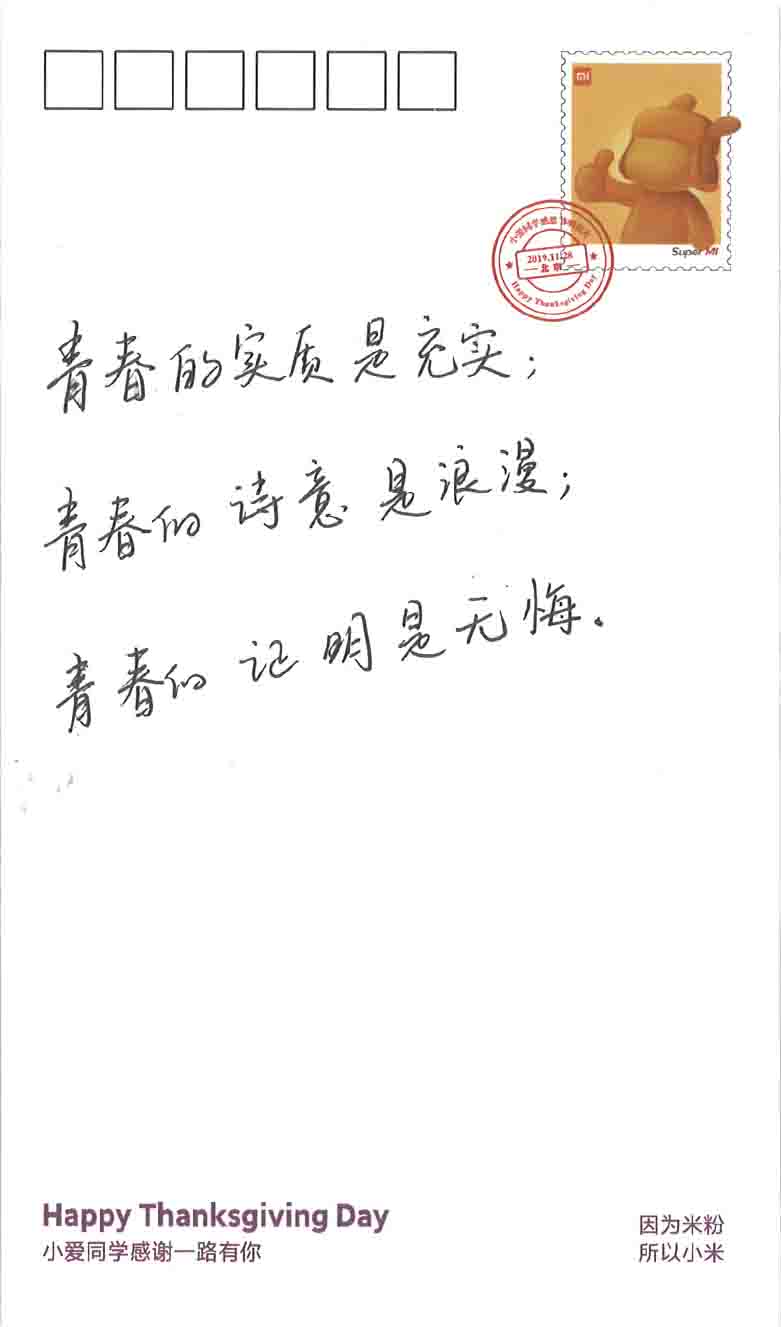 mi
Super MI
小爱同学感恩
2019.11.28
北京
Happy Thanksgiving Day
青春的实质是充实；
青春的诗意是浪漫；
青春的证明是无悔。
Happy Thanksgiving Day
小爱同学感谢一路有你
因为米粉
所以小米